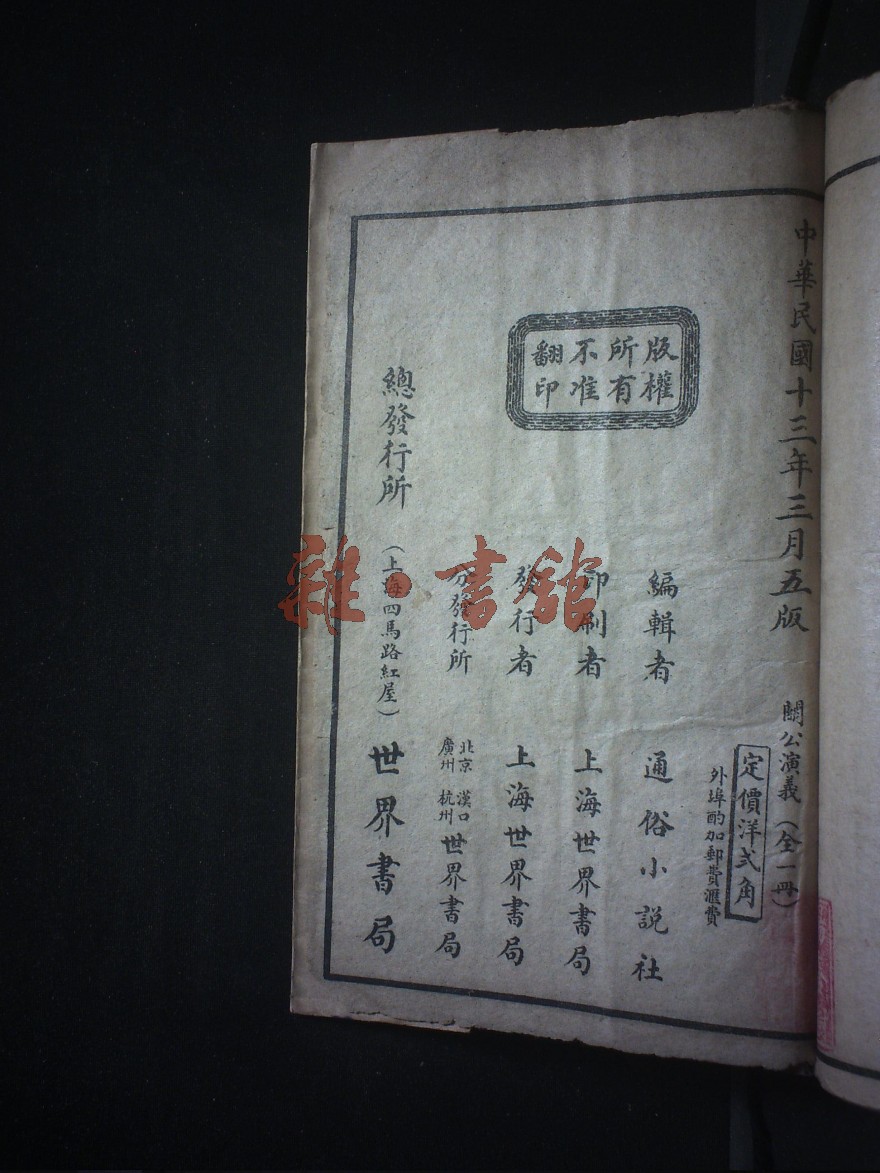 中華民國十三年三月五版
關公演義（全一冊）
定價洋弍角
外埠酌加郵費滙費
版權
所有
不准
翻印
編輯者 通俗小說社
印刷者 上海世界書局
發行者 上海世界書局
分發行所 北京 漢口 廣州 杭州 世界書局
總發行所 （上海四馬路紅屋） 世界書局
雜·書館